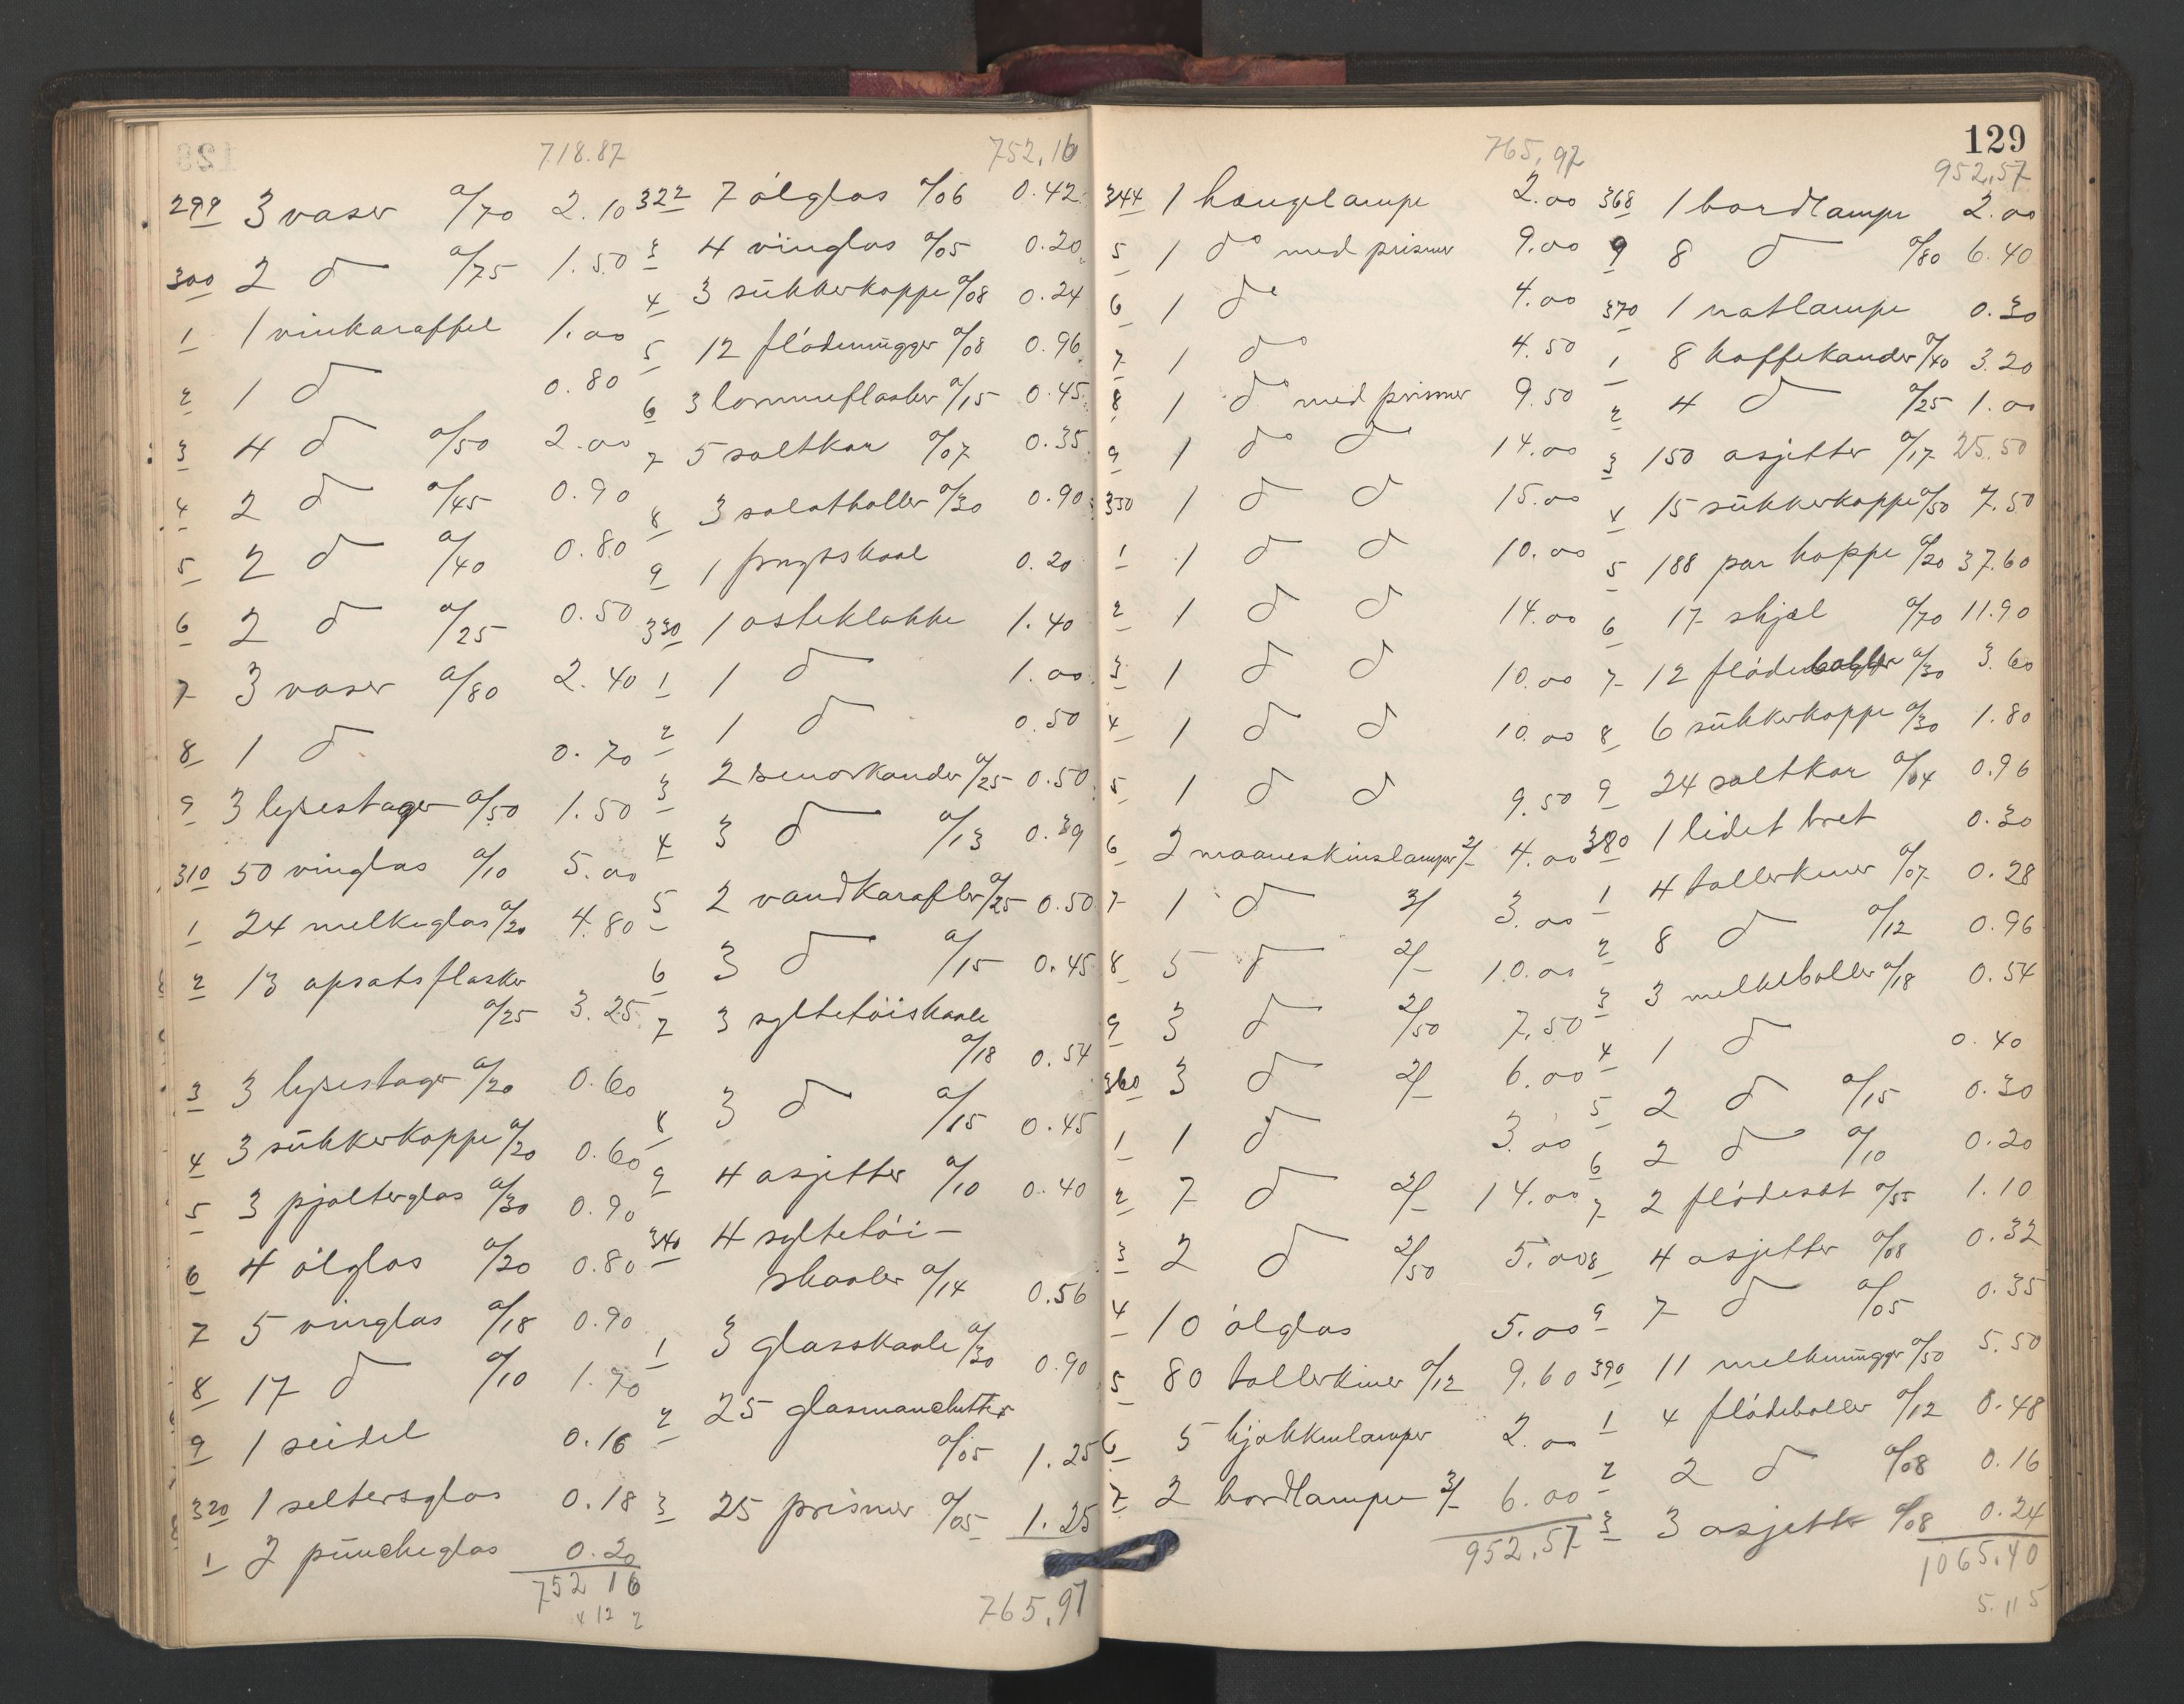 718.87
299 3 vaser a/70 2.10
300 2 do a/75 1.50
1 1 vinkaraffel 1.00
2 1 do 0.80
3 4 do a/50 2.00
4 2 do a/45 0.90
5 2 do a/40 0.80
6 2 do a/25 0.50
7 3 vaser a/80 2.40
8 1 do 0.70
9 3 lysestager a/50 1.50
310 50 vinglas a/10 5.00
1 24 melkeglas a/20 4.80
2 13 opsatsflasker
a/25 3.25
3 3 lysestager a/20 0.60
4 3 sükkerkoppe a/20 0.60
5 3 pjolterglas a/30 0.90
6 4 ølglas a/20 0.80
7 5 vinglas a/18 0.90
8 17 do a/10 1.70
9 1 seidel 0.16
320 1 seltersglas 0.18
1 2 püncheglas 0.20
752 16
752,16
322 7 ølglas a/06 0.42
3 4 vinglas a/05 0.20
4 3 sükkerkoppe a/08 0.24
5 12 flödemügger a/08 0.96
6 3 lommeflasker a/15 0.45
7 5 saltkar a/07 0.35
8 3 salatboller a/30 0.90
9 1 frugtskaal 0.20
330 1 osteklokke 1.40
1 1 do 1.00
2 1 do 0.50
3 2 senopkander a/25 0.50
4 3 do a/13 0.39
5 2 vandkarafler a/25 0.50
6 3 do a/15 0.45
7 3 syltetöiskaale
a/18 0.54
8 3 do a/15 0.45
9 4 asjetter a/10 0.40
340 4 syltetöi-
skaaler a/14 0.56
1 3 glasskaale a/30 0.90
2 25 glasmanchetter
a/05 1.25
3 25 prismer a/05 1.25
765,97
765,97
344 1 hængelampe 2.00
5 1 do med prismer 9.00
6 1 do 4.00
7 1 do 4.50
8 1 do med prismer 9.50
9 1 do do 14.00
350 1 do do 15.00
1 1 do do 10.00
2 1 do do 14.00
3 1 do do 10.00
4 1 do do 10.00
5 1 do do 9.50
6 2 maaneskinslamper 2/- 4.00
7 1 do 3/ 3.00
8 5 do 2/- 10.00
9 3 do 2/50 7.50
360 3 do 2/- 6.00
1 1 do 3.00
2 7 do 2/- 14.00
3 2 do 2/50 5.00
4 10 ølglas 5.00
5 80 tallerkiner a/12 9.60
6 5 kjøkkenlamper 2.00
7 2 bordlamper 3/- 6.00
952,57
129
952,57
368 1 bordlampe 2.00
9 8 do a/80 6.40
370 1 natlampe 0.30
1 8 kaffekander a/40 3.20
2 4 do a/25 1.00
3 150 asjetter a/17 25.50
4 15 sükkerkoppe a/50 7.50
5 188 par koppe a/20 37.60
6 17 skjæl a/70 11.90
7 12 flödeboller a/30 3.60
8 6 sükkerkoppe a/30 1.80
9 24 saltkar a/04 0.96
380 1 lidet bret 0.30
1 4 tallerkener a/07 0.28
2 8 do a/12 0.96
3 3 melkeboller a/18 0.54
4 1 do 0.40
5 2 do a/15 0.30
6 2 do a/10 0.20
7 2 flödesæt a/55 1.10
8 4 asjetter a/08 0.32
9 7 do a/05 0.35
390 11 melkemügger a/50 5.50
1 4 flödeboller a/12 0.48
2 2 do a/08 0.16
3 3 asjetter a/08 0.24
1065,40